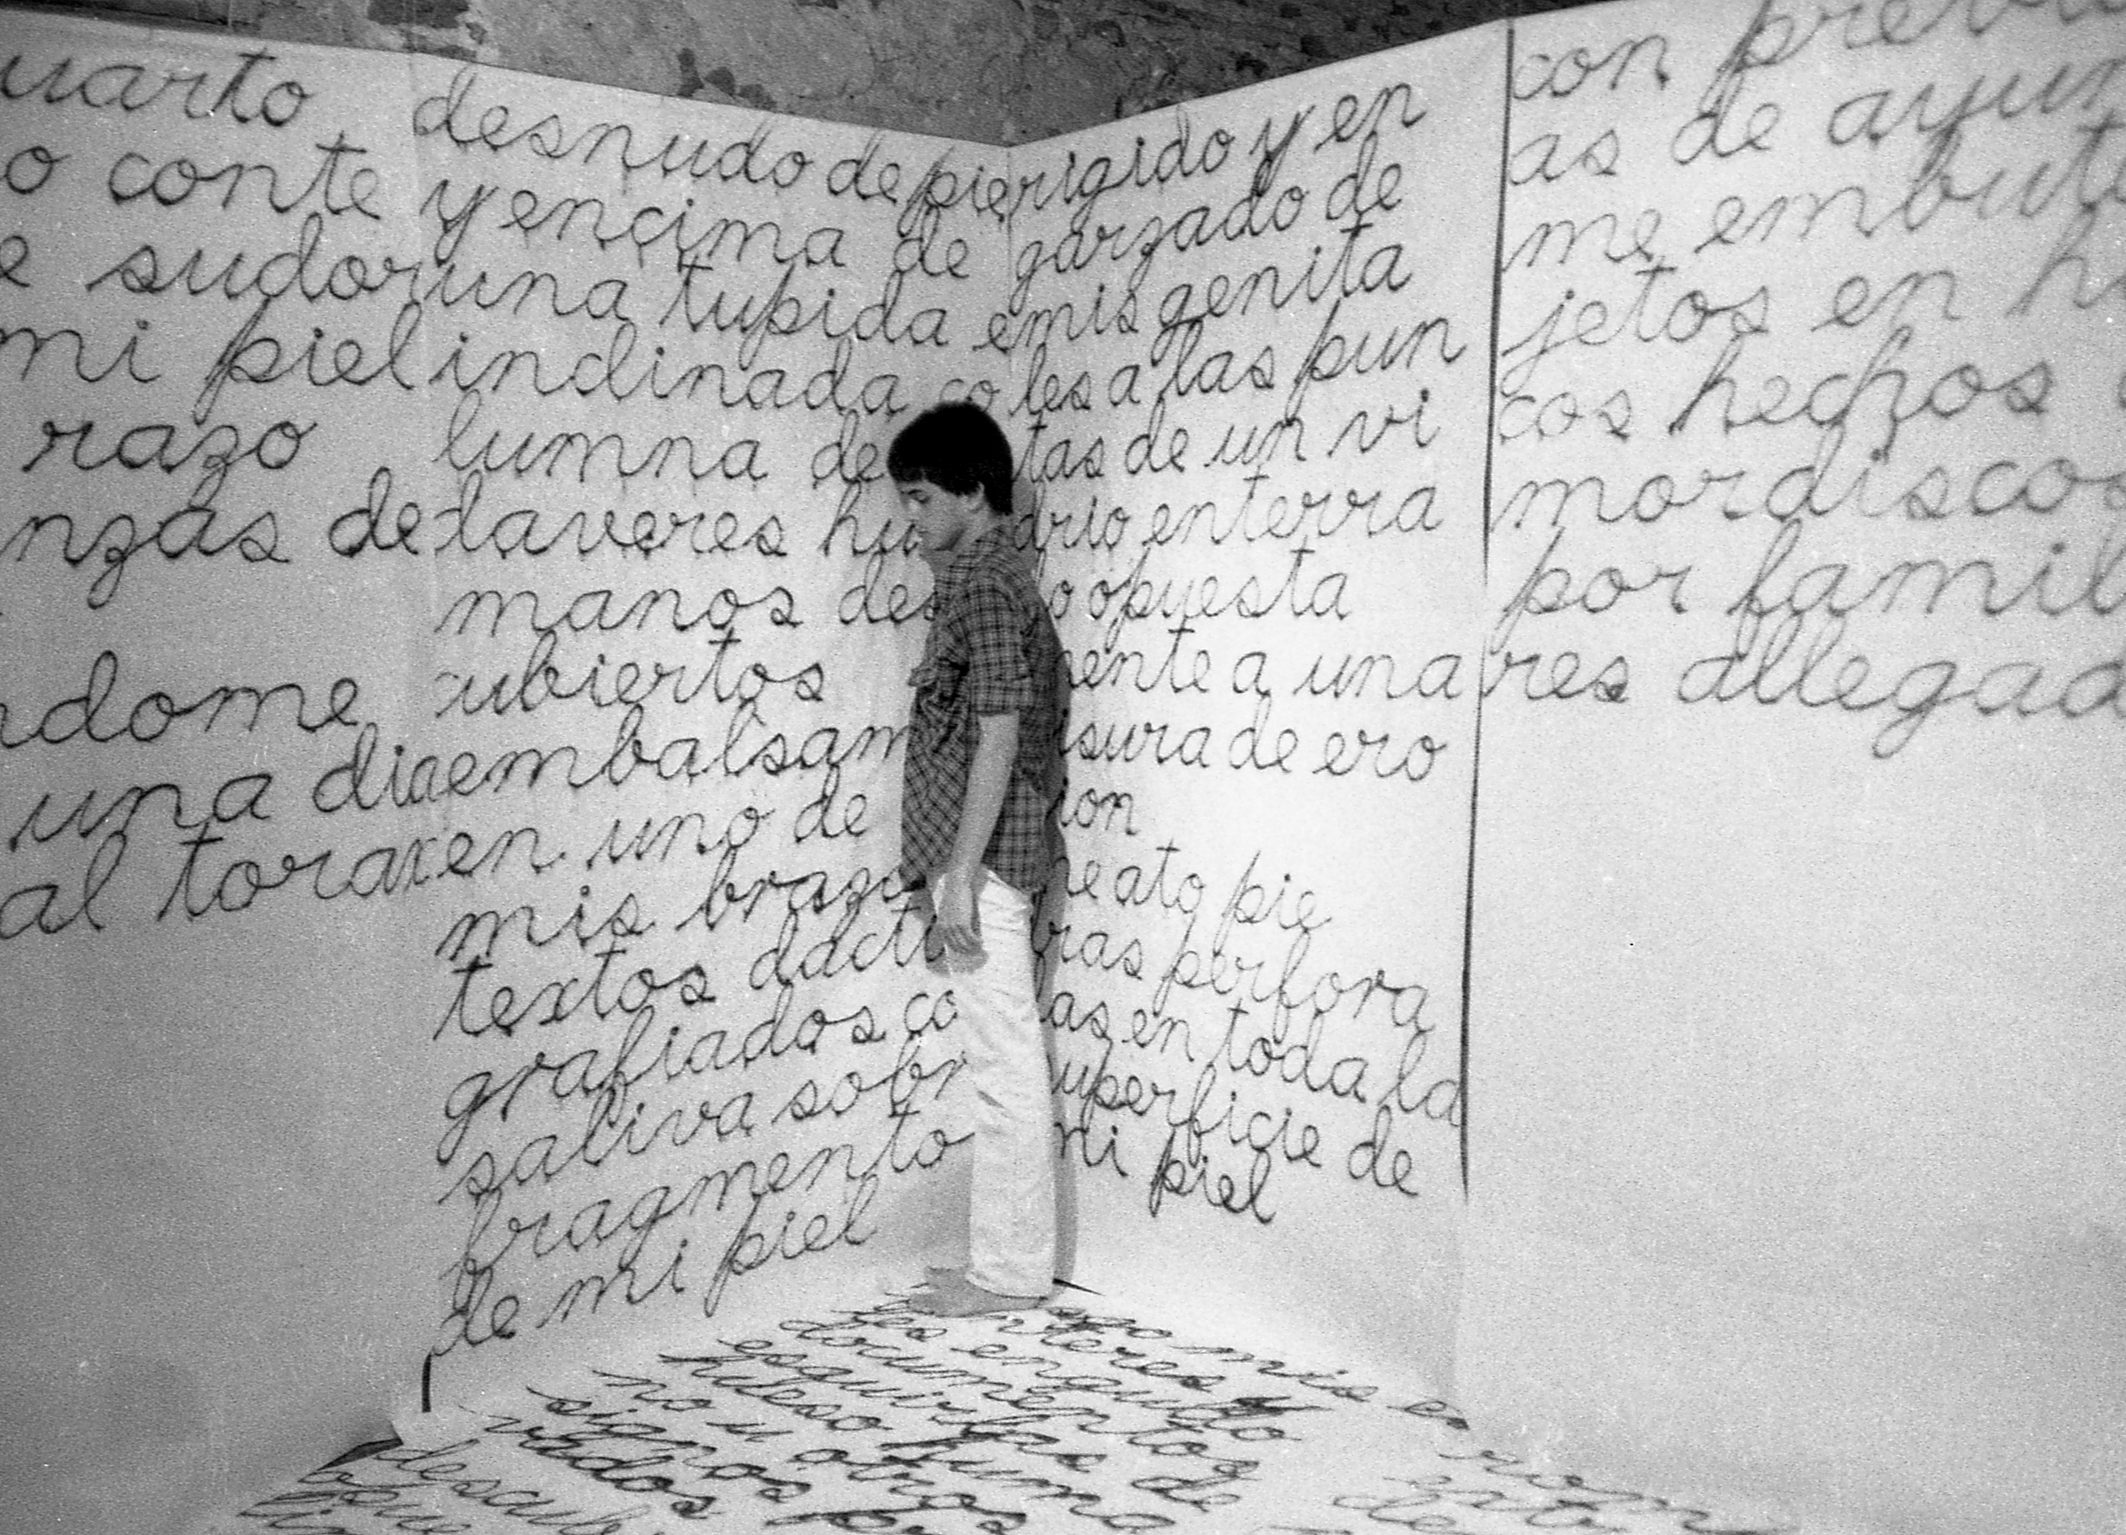 uarto
o conte
e sudor
mi piel
razo
nzas de
dome
una dia
al torax
desnudo de pie
y encima de
una tupida
inclinada co
lumna de
laveres hu
manos des
cubiertos
embalsam
en uno de
mis brazo
textos dacti
grafiados co
saliva sobr
fragmento
de mi piel
rigido y en
garzado de
emis genita
les a las pun
tas de un vi
drio enterra
o opuesta
ente a una
sura de ero
ion
eato pie
ras perfora
as en toda la
uperficie de
mi piel
con previ
as de ayun
me embuti
jetos en h
cos hechos
mordiscos
por famil
res allegad
mis e
teres y
les engudo
documentos
esquirlas de
hueso huma
no u otros
signos
vados p
descub